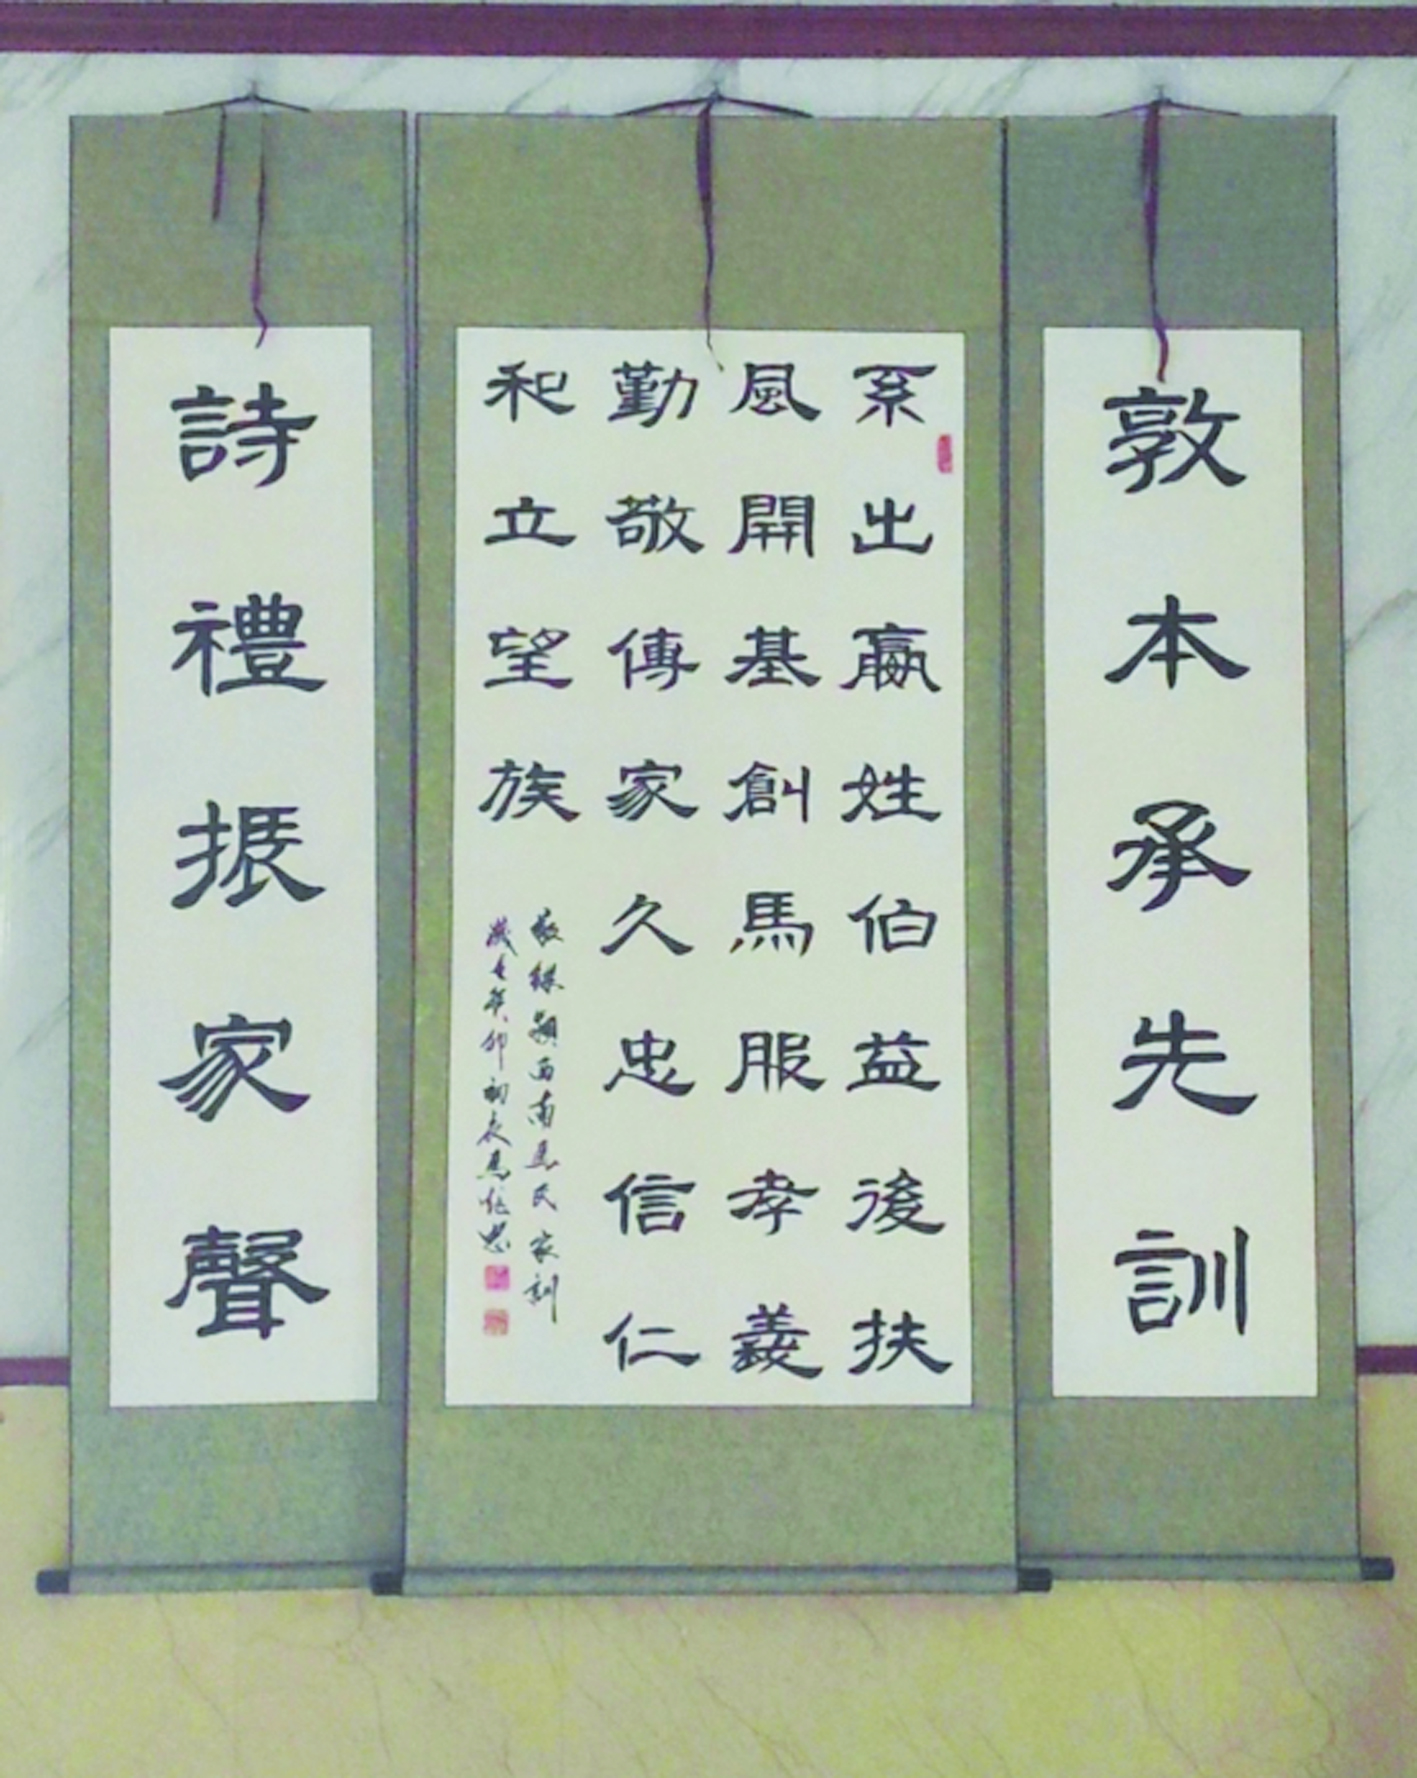 敦本承先訓
系出嬴姓伯益後扶
風開基創馬服孝義
勤敬傳家久忠信仁
和立望族
敬錄潁西南馬氏家訓
歲在癸卯初夏馬
詩禮振家聲